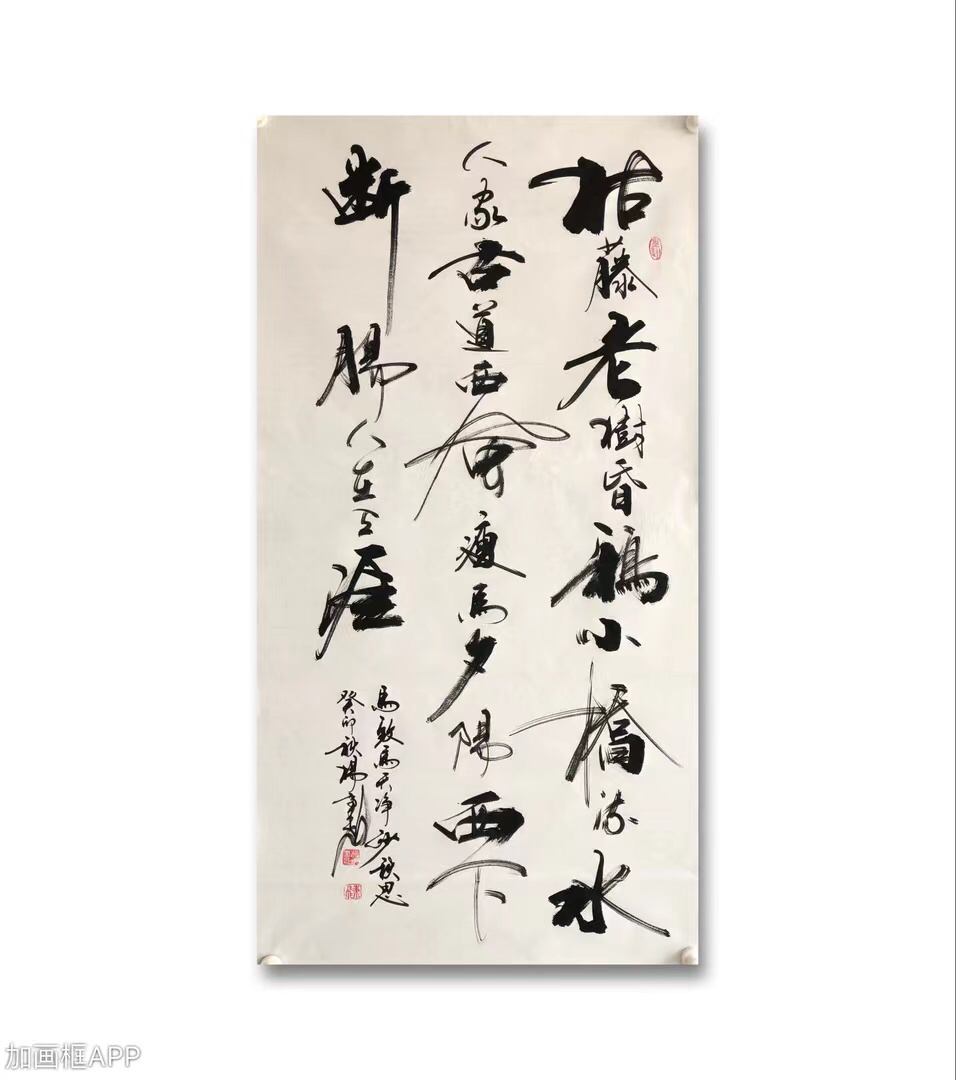 枯藤老樹昏鴉小橋流水
人家古道西風瘦馬夕陽西下
断腸人在天涯
馬致遠天净沙秋思
癸卯秋楊
加画框APP